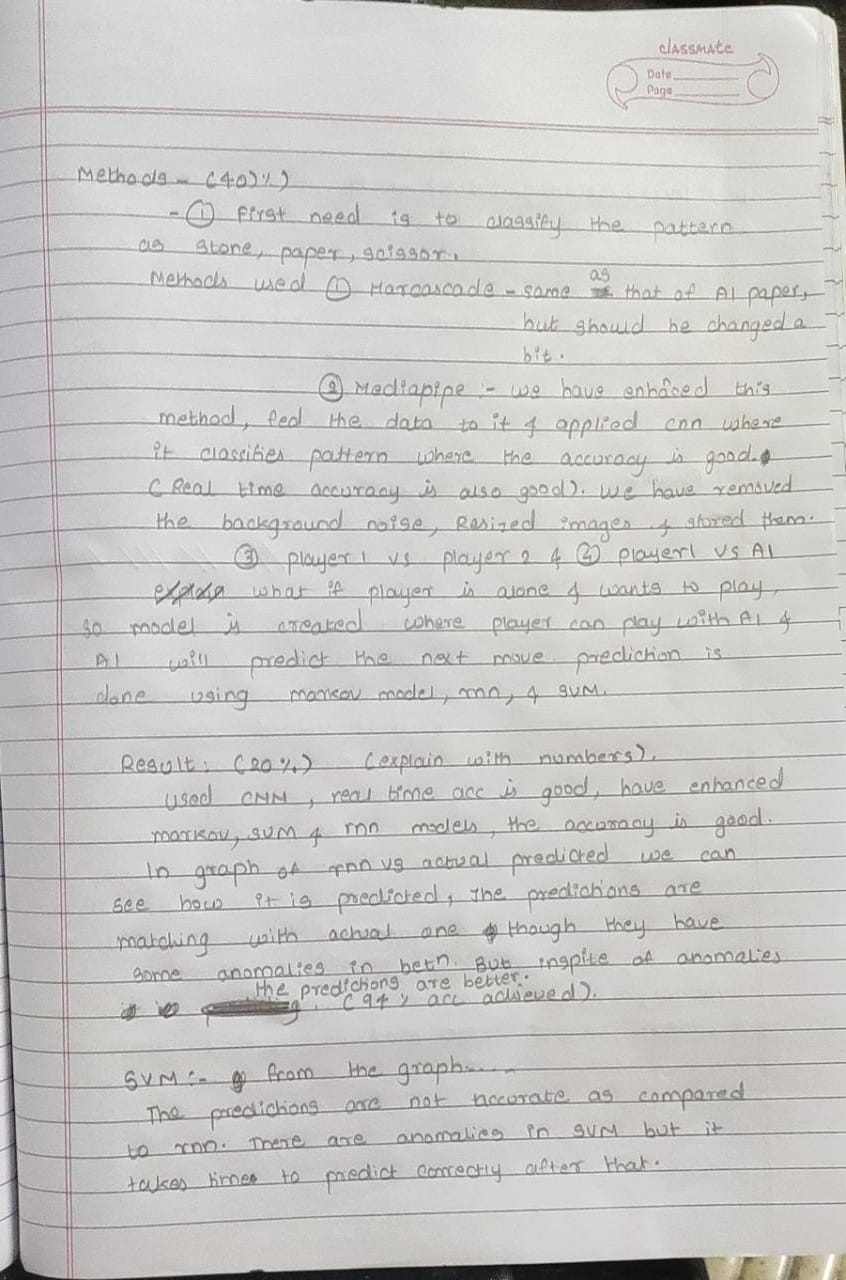 classmate
Date
Page
Methods - (40)%)
- ① First need is to classify the pattern
as stone, paper, scissor.
Methods used ① Harcascade - same as that of AI paper,
but should be changed a
bit.
② Mediapipe :- we have enhaced this
method, fed the data to it & applied cnn where
it classifies pattern where the accuracy is good.
(Real time accuracy is also good). We have removed
the background noise, Resized images & stored them.
③ player 1 vs player 2 & ④ player1 vs AI
what if player is alone & wants to play,
so model is created where player can play with AI &
AI will predict the next move. prediction is
done using markov model, rnn, & SVM.
Result: (20%) (explain with numbers).
used CNN, real time acc is good, have enhanced
markov, SVM & rnn models, the accuracy is good.
In graph of rnn vs actual predicted we can
see how it is predicted, The predictions are
matching with actual one though they have
some anomalies in betn. But inspite of anomalies
the predictions are better.
(94% acc achieved).
SVM :- from the graph.....
The predictions are not accurate as compared
to rnn. There are anomalies in SVM but it
takes times to predict correctly after that.